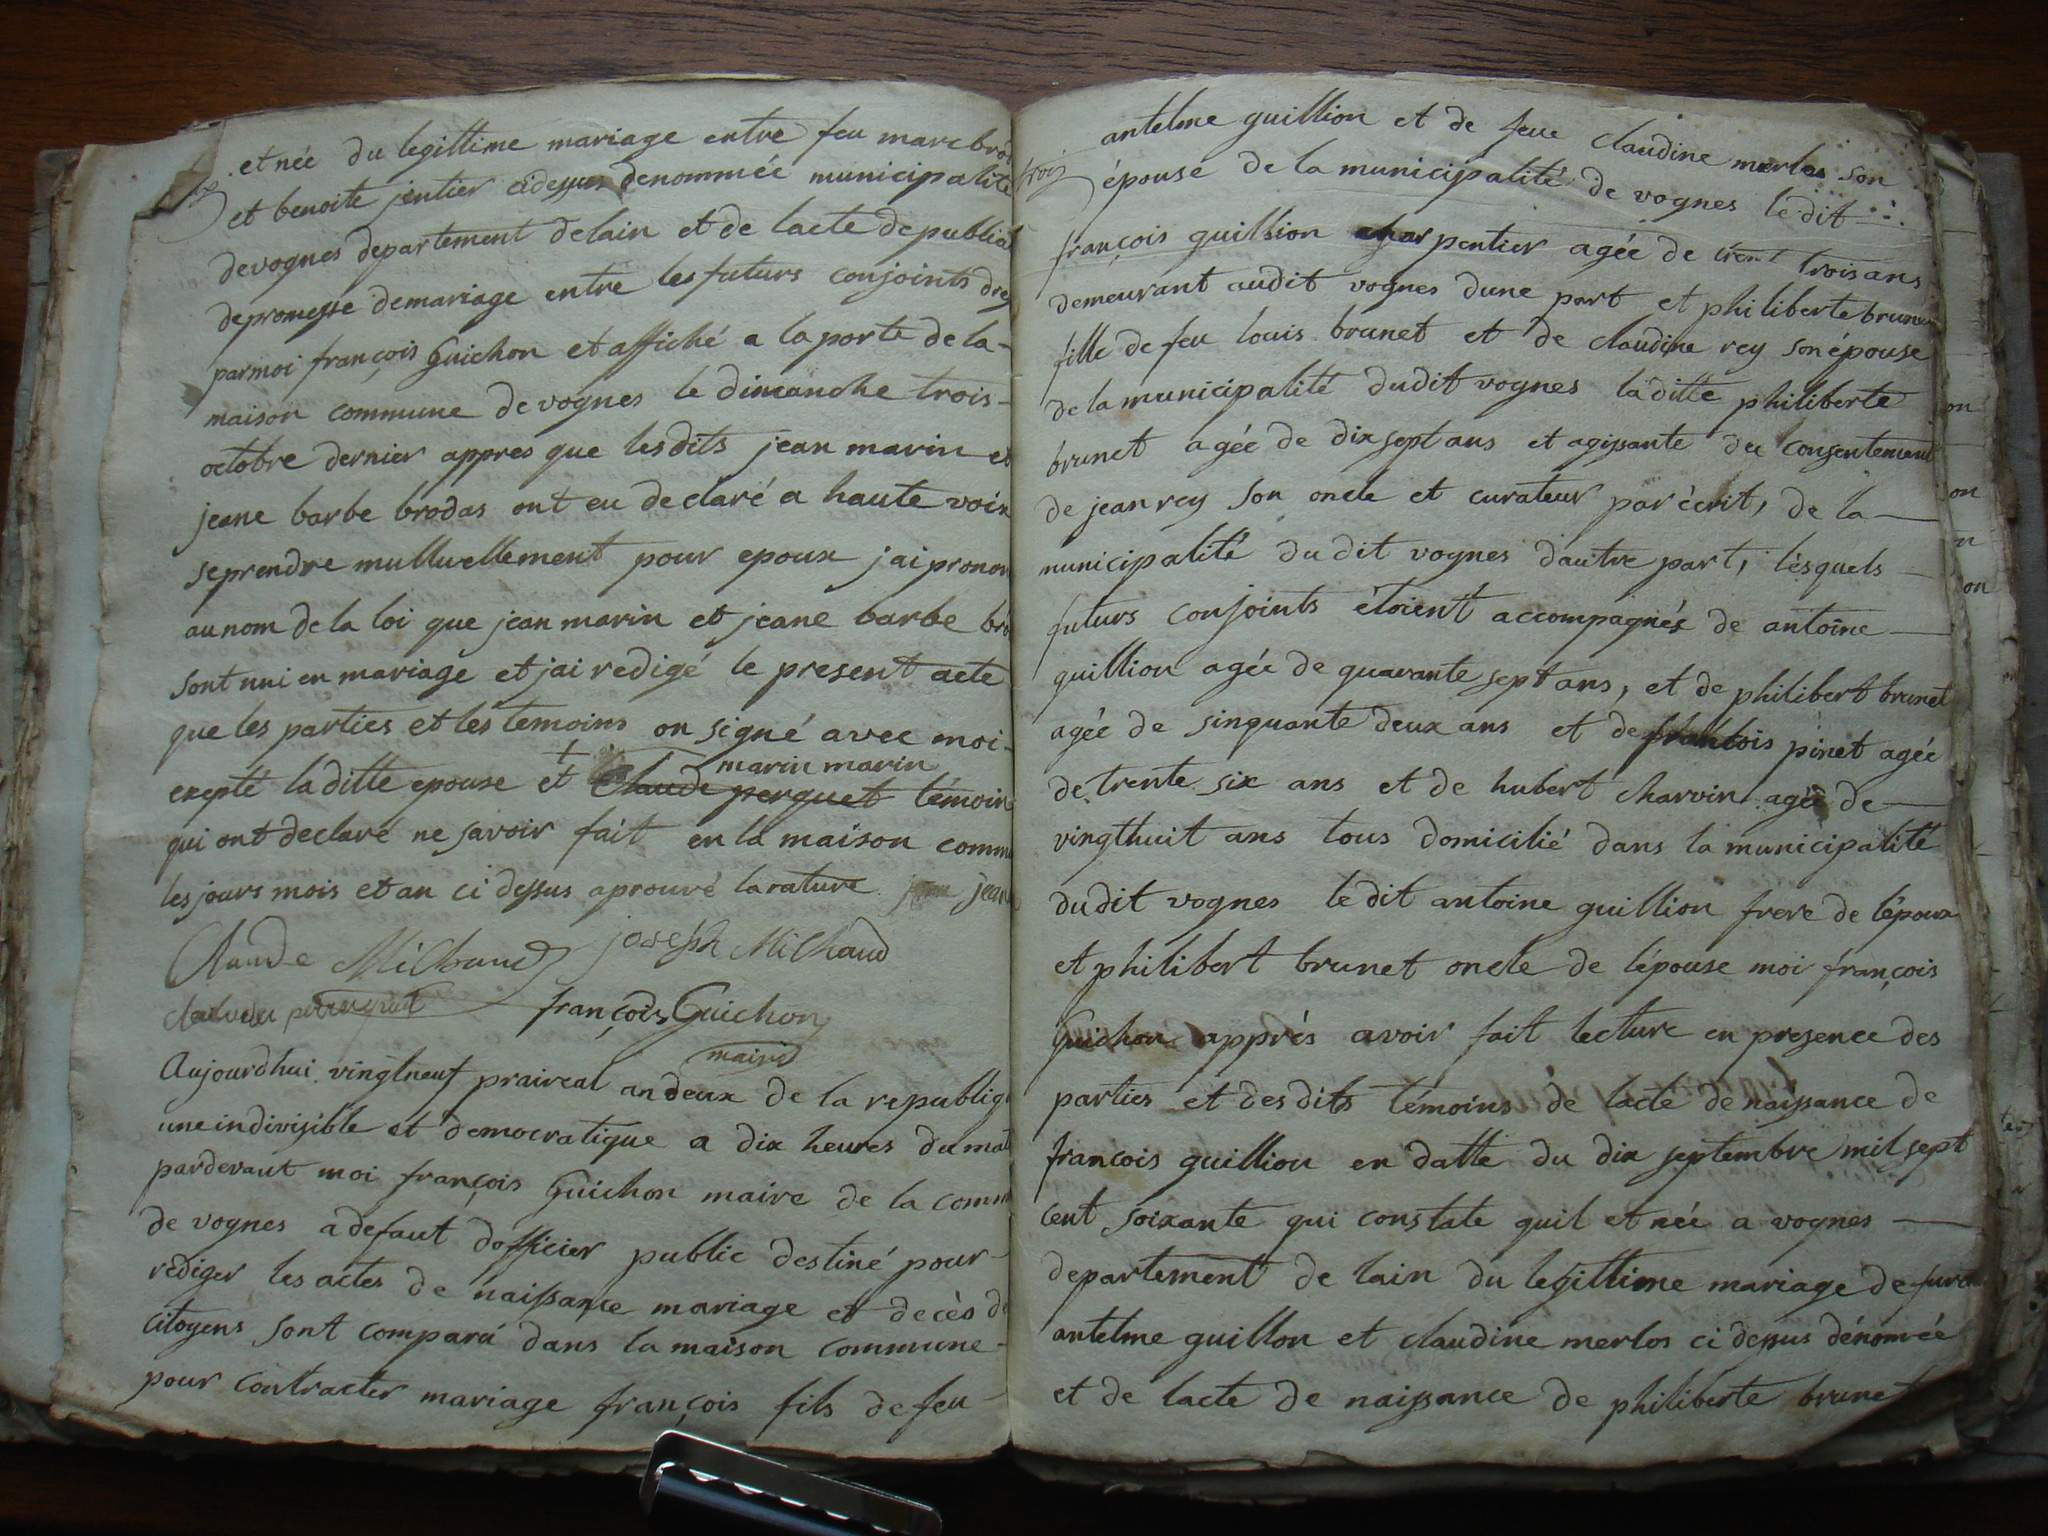 et née du legittime mariage entre feu marc brod
et benoite jentier cidessus denommée municipalité
devognes departement delain et de lacte depublicat
depromesse demariage entre les futurs conjoints dres
parmoi françois Guichon et affiché a la porte de la-
maison commune de vognes le dimanche trois-
octobre dernier appres que lesdits jean marin et
jeane barbe brodas ont eu declaré a haute voix
seprendre mulluellement pour epoux jai pronon
au nom de la loi que jean marin et jeane barbe bro
sont uni en mariage et jai redigé le present acte
que les parties et les temoins on signé avec moi-
marin marin
exepté laditte epouse et claude perquet témoins
qui ont declaré ne savoir fait en la maison commu
les jours mois et an ci dessus aprouvé la rature jean
Claude Milhaud joseph Milhaud
françois Guichon
maire
Aujourdhui vingtneuf praireal andeux de la republiq
une indivisible et democratique a dix heures du mat
pardevant moi françois Guichon maire de la comm
de vognes adefaut dofficier public destiné pour-
rédiger les actes de naissance mariage et decès de
citoyens sont comparu dans la maison commune-
pour contracter mariage françois fils de feu-
trois
antelme guillion et de feue claudine merlos son
épouse de la municipalité de vognes le dit
françois guillion charpentier agée de trent trois ans
demeurant audit vognes dune part et philiberte brunet
fille de feu louis brunet et de claudine rey son épouse
de la municipalité dudit vognes laditte philiberte
brunet agée de dix sept ans et agissante du consentement
de jean rey son oncle et curateur par écrit, de la
municipalité du dit vognes dautre part, lésquels
futurs conjoints étoient accompagnés de antoine
guillion agée de quarante sept ans, et de philibert brunet
agée de sinquante deux ans et de francois pinet agée
de trente six ans et de hubert charvin agée de
vingthuit ans tous domicilié dans la municipalité
dudit vognes le dit antoine guillion frere de lépoux
et philibert brunet oncle de lépouse moi françois
Guichon apprés avoir fait lecture en presence des
parties et des dits témoins de lacte de naissance de
francois guillion en datte du dix septembre mil sept
cent soixante qui constate quil et née a vognes
departement de lain du legittime mariage de
antelme guillon et claudine merlos ci dessus dénomée
et de lacte de naissance de philiberte brunet